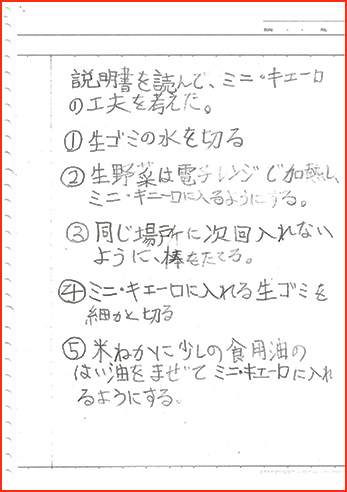 Date ・ ・ No.
説明書を読んで、ミニ・キエーロ
の工夫を考えた。
①生ゴミの水を切る
②生野菜は電子レンジで加熱し、
ミニ・キエーロに入るようにする。
③同じ場所に次回入れない
ように、棒をたてる。
④ミニ・キエーロに入れる生ゴミを
細かく切る
⑤米ぬかに少しの食用油の
はい油をまぜてミニ・キエーロに入れ
るようにする。